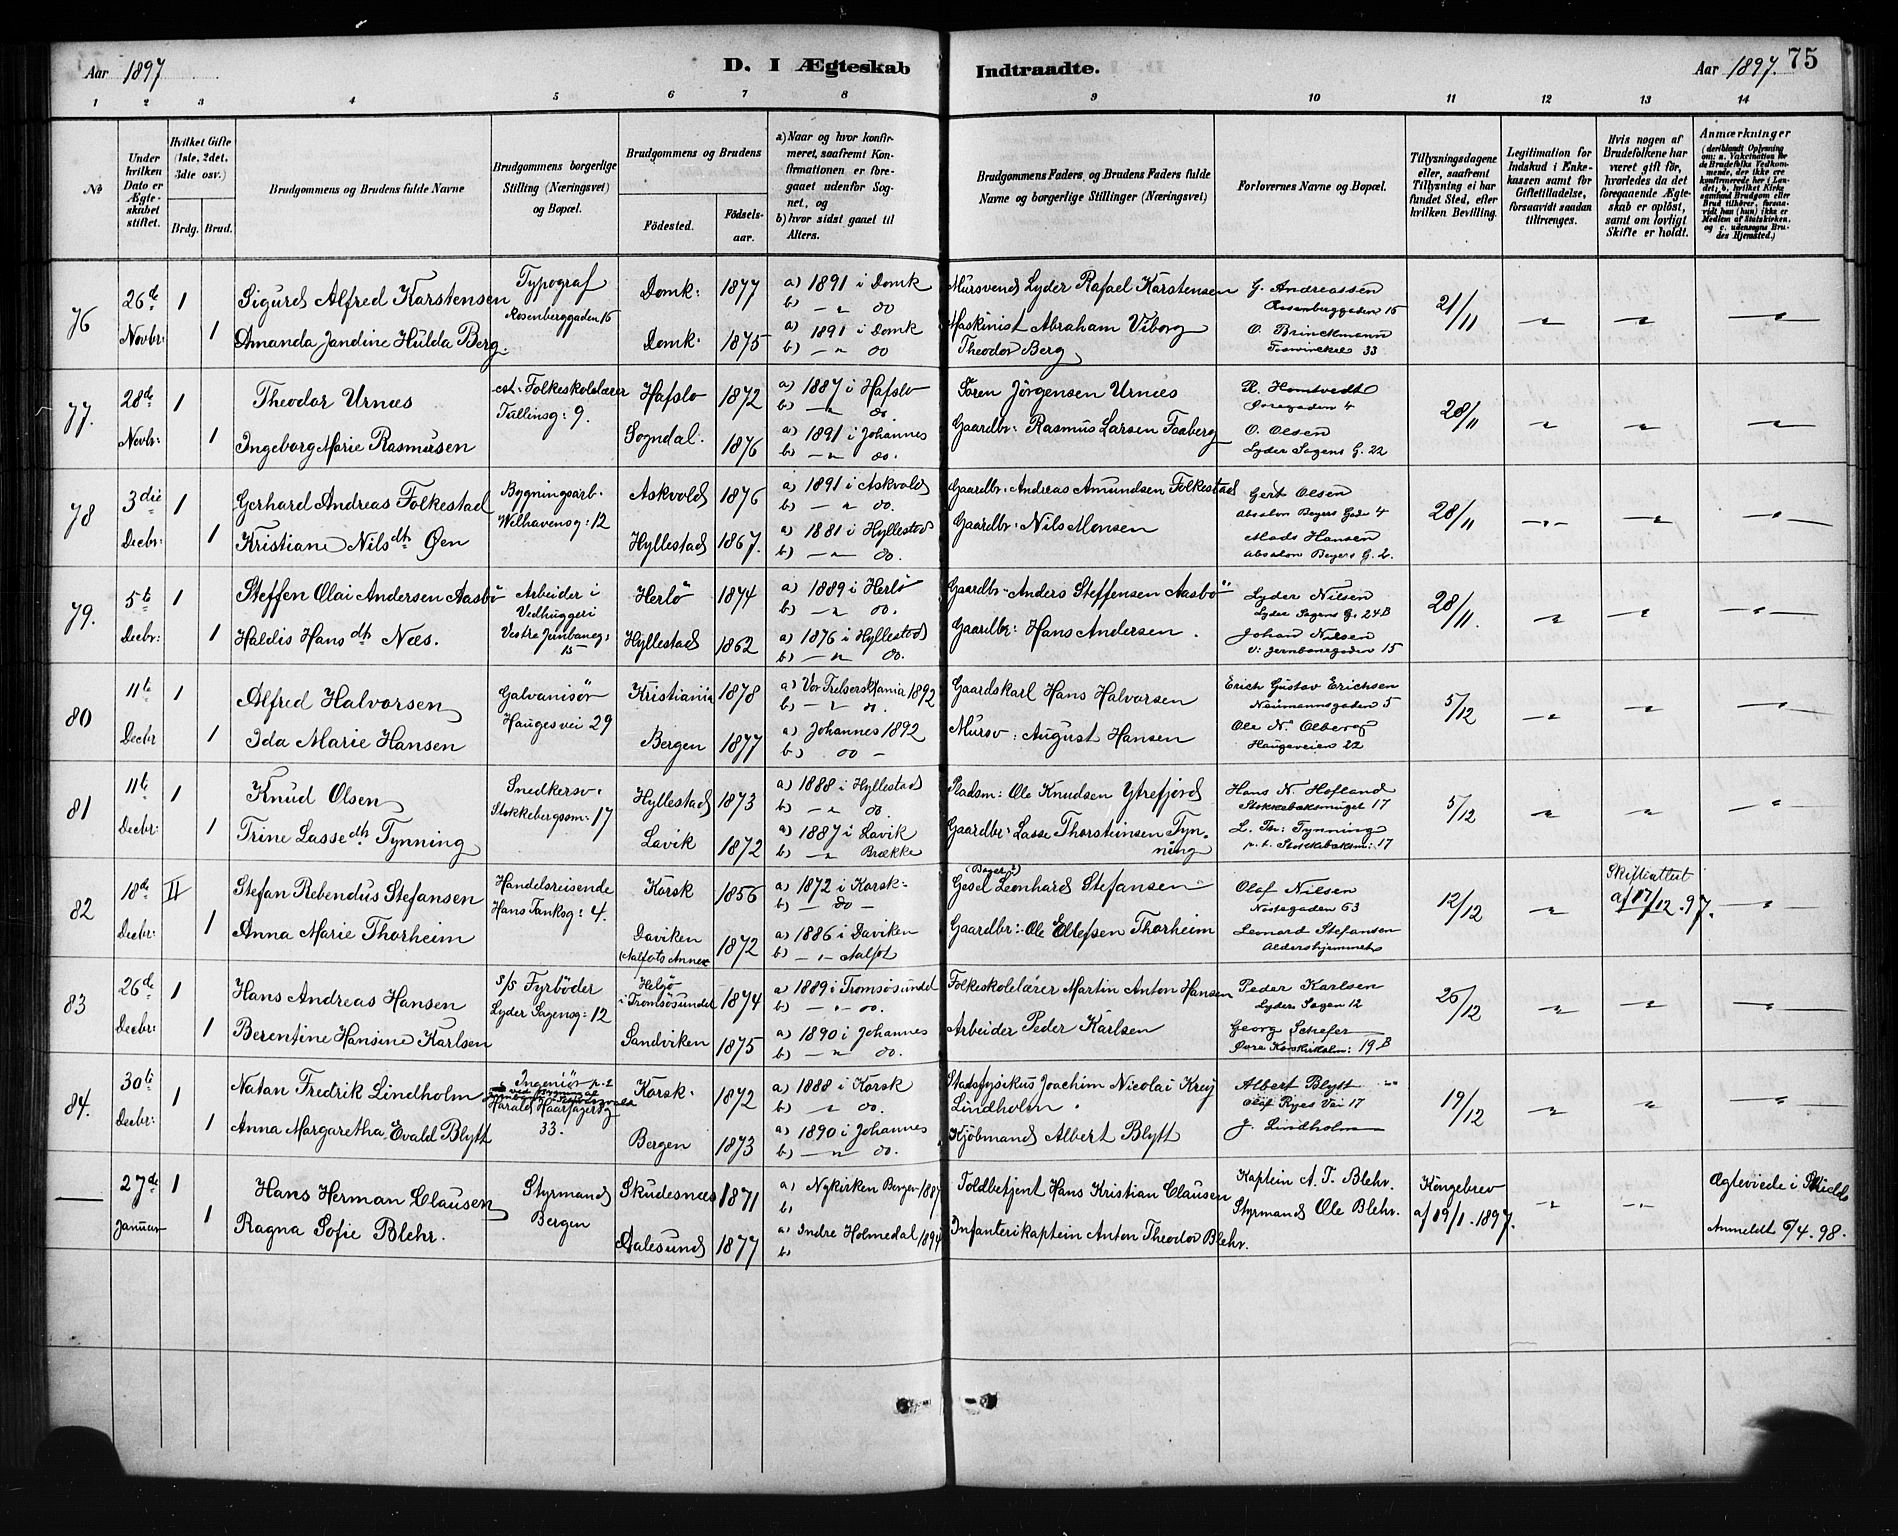 Aar 1897
D. I Ægteskab Indtraadte.
Aar 1897. 75
1 2 3 4 5 6 7 8 9 10 11 12 13 14
No
Under hvilken Dato er Ægteskabet stiftet.
Hvilket Gifte (1ste, 2det, 3die osv.)
Brdg. Brud.
Brudgommens og Brudens fulde Navne
Brudgommens borgerlige Stilling (Næringsvei) og Bopæl.
Brudgommens og Brudens
Födested.
Födsels-aar.
a) Naar og hvor konfirmeret, saafremt Konfirmationen er foregaaet udenfor Sognet, og
b) hvor sidst gaaet til Alters.
Brudgommens Faders, og Brudens Faders fulde Navne og borgerlige Stillinger (Næringsvei)
Forlovernes Navne og Bopæl.
Tillysningsdagene eller, saafremt Tillysning ei har fundet Sted, efter hvilken Bevilling.
Legitimation for Indskud i Enkekassen samt for Giftetilladelse, forsaavidt saadan tiltrænges.
Hvis nogen af Brudefolkene har været gift för, hvorledes da det foregaaende Ægteskab er oplöst, samt om lovligt Skifte er holdt.
Anmærkninger (deriblandt Oplysning om: a. Vakcination for de Brudefolks Vedkommende, der ikke ere konfirmerede her i Landet; b. hvilket Kirkesamfund Brudgom eller Brud tilhører, forsaavidt han (hun) ikke er Medlem af Statskirken, og c. udensogns Brudes Hjemsted.)
76 26de Novbr: 1 Sigurd Alfred Karstensen Typograf Rosenberggaden 15 Domk: 1877 a) 1891 i Domk b) — " do Mursvend Lyder Rafael Karstensen G. Andreassen Rosenberggaden 15 21/11
1 Amanda Jandine Hulda Berg. Domk: 1875 a) 1891 i Domk b) — " do Maskinist Abraham Viborg Theodor Berg O. Brinckmann 33
77. 28de Novbr: 1 Theodor Urnæs Folkeskolelærer Tullinsg: 9. Hafslo 1872 a) 1887 i Hafslo b) — " do. Sören Jörgensen Urnæs R. Homtvedt 4 28/11
1 Ingeborg Marie Rasmusen Sogndal. 1876 a) 1891 i Johannes b) — " do. Gaardbr: Rasmus Larsen Faaberg O. Olsen Lyder Sagens G. 22
78 3die Decbr: 1 Gerhard Andreas Folkestad Bygningsarb. Welhavensg: 12 Askvold 1876 a) 1891 i Askvold b) — " do. Gaardbr. Andreas Amundsen Folkestad Gert Olsen Absalon Beyers Gade 4 28/11
1 Kristiane Nilsdtr Øen Hyllestad 1867. a) 1881 i Hyllestad b) — " do. Gaardbr: Nils Monsen Mads Hansen Absalon Beyers G. 2.
79. 5te Decbr: 1 Steffen Olai Andersen Aasbö Arbeider i Vedhuggeri Vestre Jernbaneg: 15 Herlö 1874 a) 1889 i Herlö b) — " do. Gaardbr. Anders Steffensen Aasbö Lyder Nilsen Lyder Sagens G. 24B 28/11.
1 Haldis Hansdtr Næs. Hyllestad 1862 a) 1876 i Hyllestad b) — " do. Gaardbr: Hans Andersen. Johan Nilsen V: Jernbanegaden 15
80 11te Decbr 1 Alfred Halvorsen Galvanisör Haugesvei 29 Kristiania 1878 a) Vor Frelsers Kania 1892 b) — " do. Gaardskarl Hans Halvorsen Erich Gustav Erichsen Neumannsgaden 5 5/12
1 Ida Marie Hansen Bergen 1877 a) Johannes 1892 b) do — Mursv: August Hansen Ole N. Olberg Haugeveien 22
81 11te Decbr: 1 Knud Olsen Snedkersv. Stokkebergsm: 17 Hyllestad 1873 a) 1888 i Hyllestad b) — " do. Pladsm: Ole Knudsen Ytrefjord Hans N. Hofland Stokkebaksmuget 17 5/12
1 Trine Lassedtr. Tynning Lavik 1872 a) 1887 i Lavik b) — " Brække Gaardbr: Lasse Thorsteinsen Tynning L. Th: Tynning p. t. Stokkebaksm: 17
82 18de Decbr: II Stefan Rebendus Stefansen Handelsreisende Hans Tanksg: 4. Korsk 1856 a) 1872 i Korsk. b) — do — (Bager?) Gesel Leonhard Stefansen Olaf Nilsen Nöstegaden 63 12/12 Skifteattest af 17/12. 97.
1 Anna Marie Thorheim Daviken (Aalfots Annex 1872 a) 1886 i Daviken b) — " — Aalfot Gaardbr: Ole Ellefsen Thorheim Leonard Stefansen Aldershjemmet
83 26de Decbr: 1 Hans Andreas Hansen S/S Fyrböder Lyder Sagensg: 12 Helgö i Tromsösundet 1874 a) 1889 i Tromsösundet b) — " — do. Folkeskolelærer Martin Anton Hansen Peder Karlsen Lyder Sagen 12 26/12
1 Berentine Hansine Karlsen Sandviken 1875 a) 1890 i Johannes b) — " do. Arbeider Peder Karlsen Georg Schefer Övre Korskirkealm: 19 B
84. 30te Decbr: 1 Natan Fredrik Lindholm Ingeniör Harald Haarfagersg 33. Korsk. 1872 a) 1888 i Korsk b) — " do. Stadsfysikus Joachim Nicolai Krey Lindholm. Albert Blytt Olaf Ryes Vei 17 19/12
1 Anna Margaretha Evald Blytt Bergen 1873 a) 1890 i Johannes b) — " do. Kjöbmand Albert Blytt J. Lindholm
— 27de Januar 1 Hans Herman Clausen Styrmand Bergen Skudesnæs 1871 a) Nykirken Bergen 1887 b) Toldbetjent Hans Kristian Clausen Kaptein A. T. Blehr. Kongebrev af 19/1. 1897. Ægteviede i
1 Ragna Sofie Blehr. Aalesund 1877 a) Indre Holmedal 1894 b) Infanterikaptein Anton Theodor Blehr. Styrmand Ole Blehr. Anmeldt 6/4. 98.